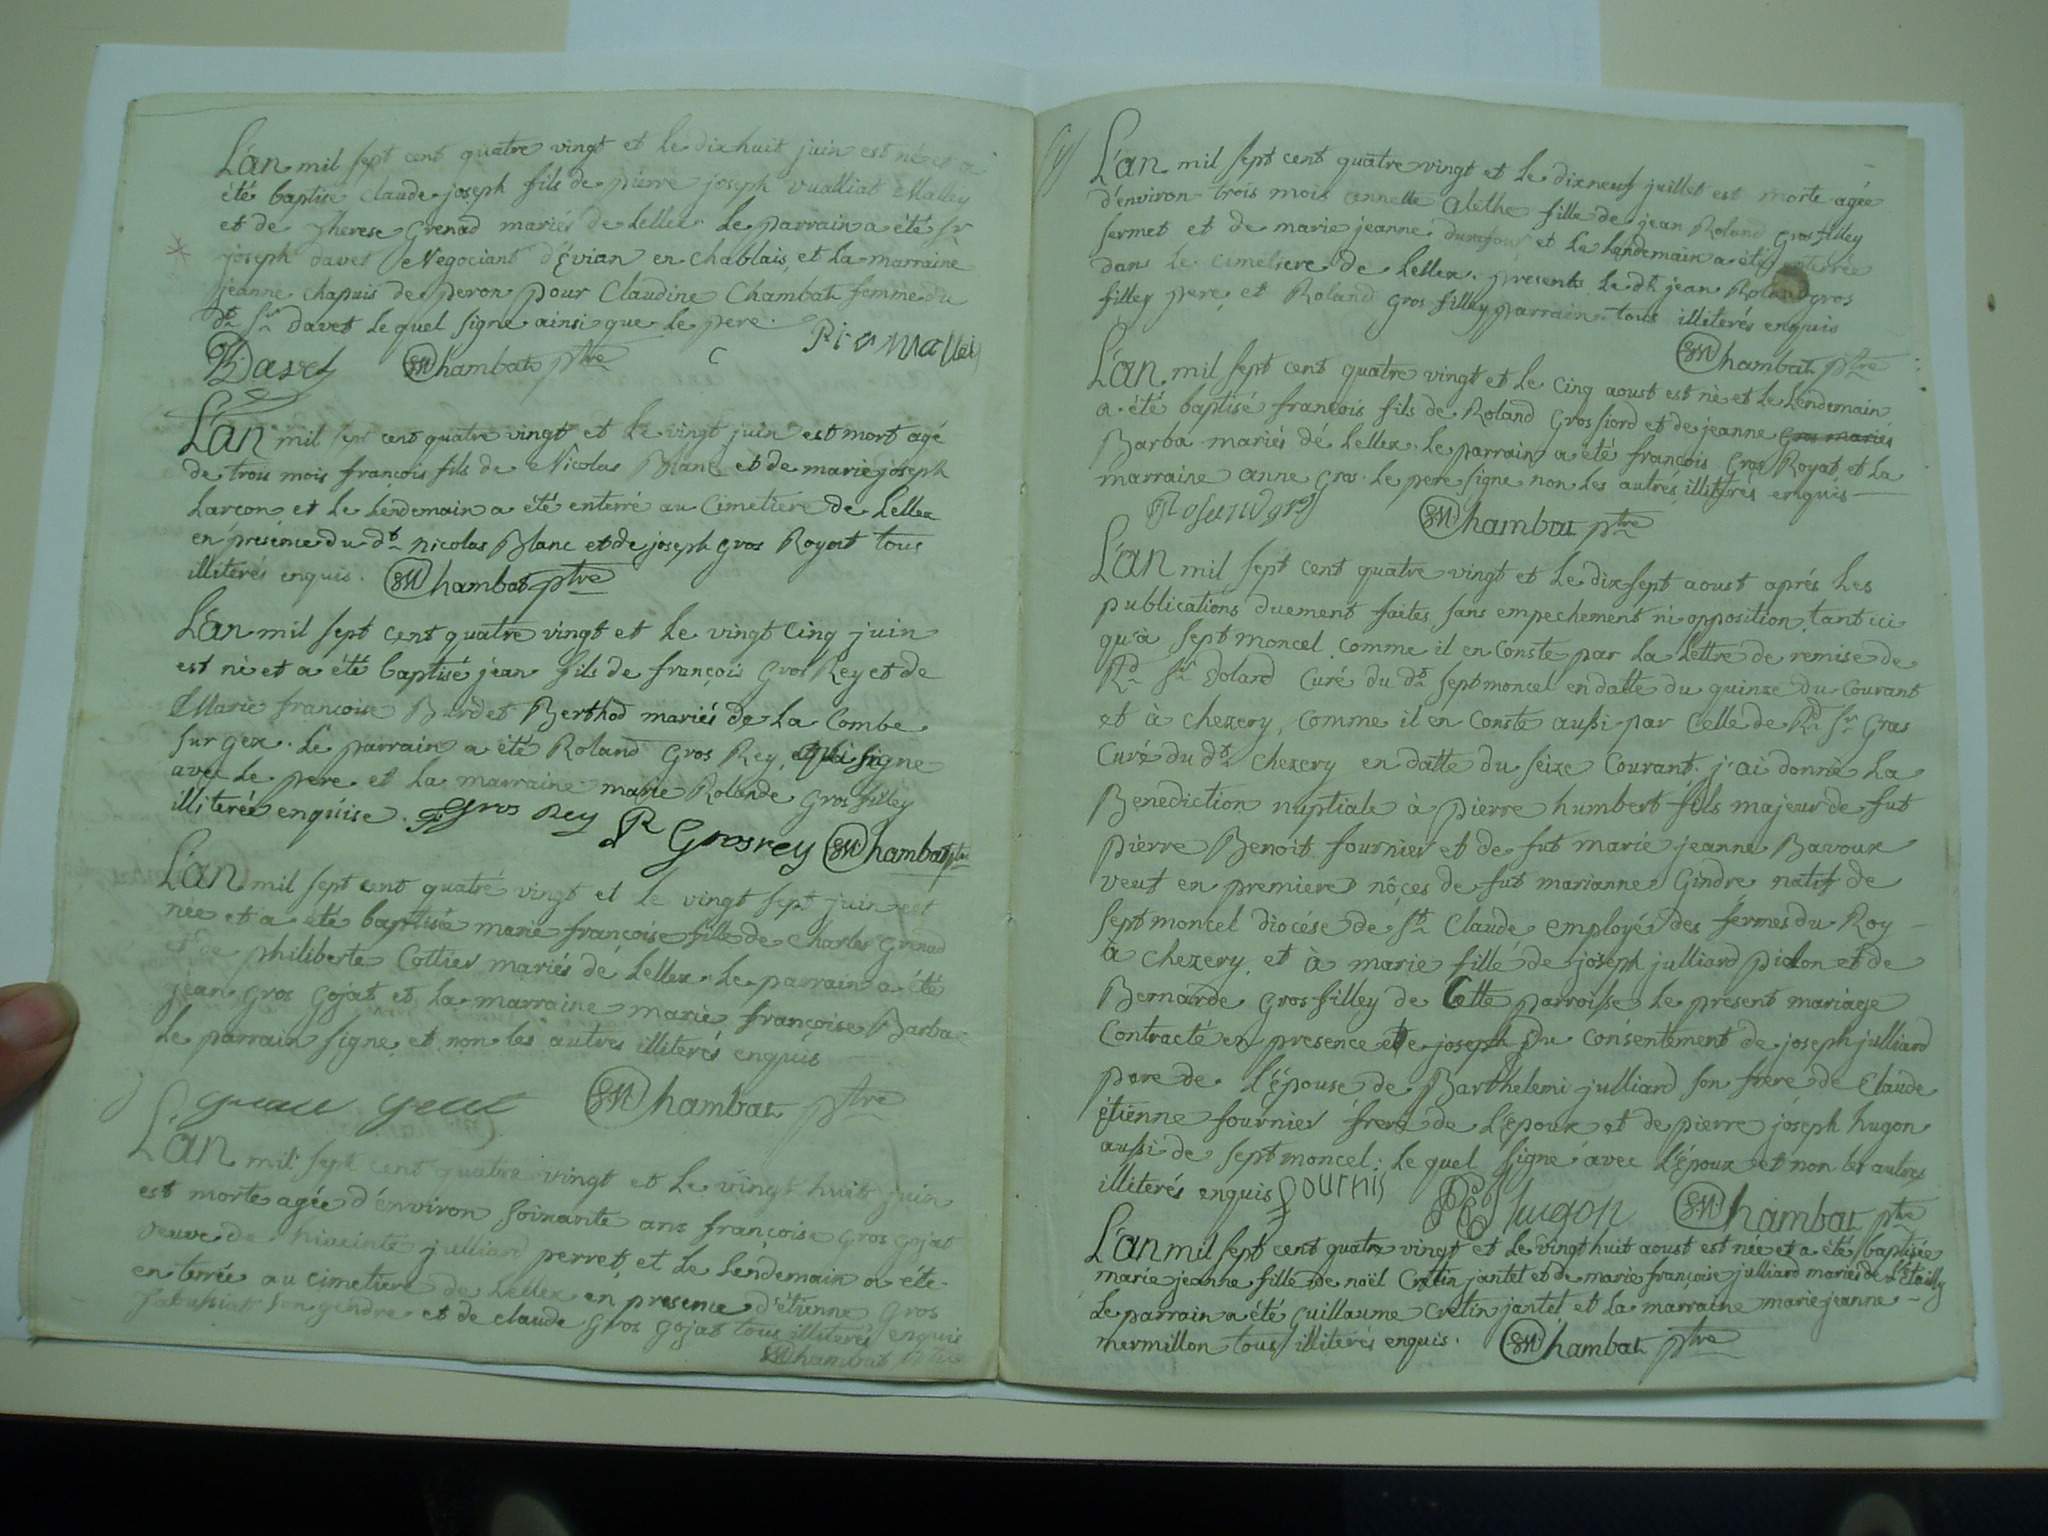 L'an mil sept cent quatre vingt et le dixhuit juin est né et a
été baptise claude joseph fils de pierre joseph vualliat Malley
et de Therese Grenad mariés de Lellex Le parrain a été Sr
joseph davet Negociant d'Evian en Chablais, et la marraine
jeanne chapuis de peron pour Claudine Chambat femme du
dt Sr davet lequel signe ainsi que le pere.
Davet Chambat ptre
L'an mil sept cent quatre vingt et le vingt juin est mort agé
de trois mois françois fils de Nicolas Blanc et de marie joseph
Larcon et le lendemain a été enterré au Cimetiere de Lellex
en présence du dt nicolas Blanc et de joseph gros Royat tous
illiterés enquis. Chambat ptre
L'an mil sept cent quatre vingt et le vingt cinq juin
est né et a été baptisé jean fils de françois Gros Rey et de
Marie françoise Burdet Berthod mariés de la Combe
sur gex. Le parrain a été Roland Gros Rey, qui signe
avec le pere et la marraine marie Rolande gros filley
illiterée enquise. Gros Rey R Grosrey Chambat ptre
L'an mil sept cent quatre vingt et le vingt sept juin est
née et a été baptisée marie françoise fille de Charles grenad
et de philiberte Cottier mariés de Lellex. Le parrain a été
jean gros gojat et la marraine marie françoise Barba
Le parrain signe et non les autres illiterés enquis
Chambat ptre
L'an mil sept cent quatre vingt et le vingt huit juin
est morte agée d'environ soixante ans françoise gros gojat
veuve de hiacinte julliard perret, et le lendemain a été
enterrée au cimetiere de Lellex en presence d'étienne Gros
son gendre et de claude gros gojat tous illiterés enquis
Chambat ptre
L'an mil sept cent quatre vingt et le dixneuf juillet est morte agée
d'environ trois mois Alethe fille de jean Roland gros filley
fermet et de marie jeanne durafour et le lendemain a été enterrée
dans le cimetiere de Lellex. presents le dt jean Roland gros
filley pere, et Roland gros filley parrain tous illiterés enquis
Chambat ptre
L'an mil sept cent quatre vingt et le cinq aoust est né et le Lendemain
a été baptisé françois fils de Roland Gros fiord et de jeanne gros mariés
Barba mariés de Lellex. le parrain a été françois Gros Royat et la
marraine anne gros. Le pere signe non les autres illiterés enquis
Chambat ptre
L'an mil sept cent quatre vingt et le dix sept aoust aprés les
publications duement faites sans empechement ni opposition tant ici
qu'à septmoncel comme il en conste par la lettre de remise de
Rd Sr Dolard Curé du dt septmoncel en datte du quinze du Courant
et à chezery, comme il en conste aussi par celle de Rd Sr Gras
Curé du dt Chezery en datte du seize Courant. j'ai donné la
Benediction nuptiale à pierre humbert fils majeur de fut
pierre Benoit fournier et de fut marie jeanne Bavoux
veuf en premieres nôces de fut marianne Gindre natif de
septmoncel diocése de St Claude employé des fermes du Roy
à chezery, et à marie fille de joseph julliard pidon et de
Bernarde gros filley de Cette parroisse le present mariage
Contracté en presence et de joseph Du consentement de joseph julliard
pere de l'épouse, de Barthelemi julliard son frere de Claude
étienne fournier frere de l'epoux et de pierre joseph hugon
aussi de septmoncel: lequel signe avec l'époux et non les autres
illiterés enquis fournis PJ hugon Chambat ptre
L'an mil sept cent quatre vingt et le vingt huit aoust est née et a été baptisée
marie jeanne fille de noël Cretin jantet et de marie françoise julliard mariés de
Le parrain a été guillaume Cretin jantet et la marraine marie jeanne
mermillon tous illiterés enquis. Chambat ptre